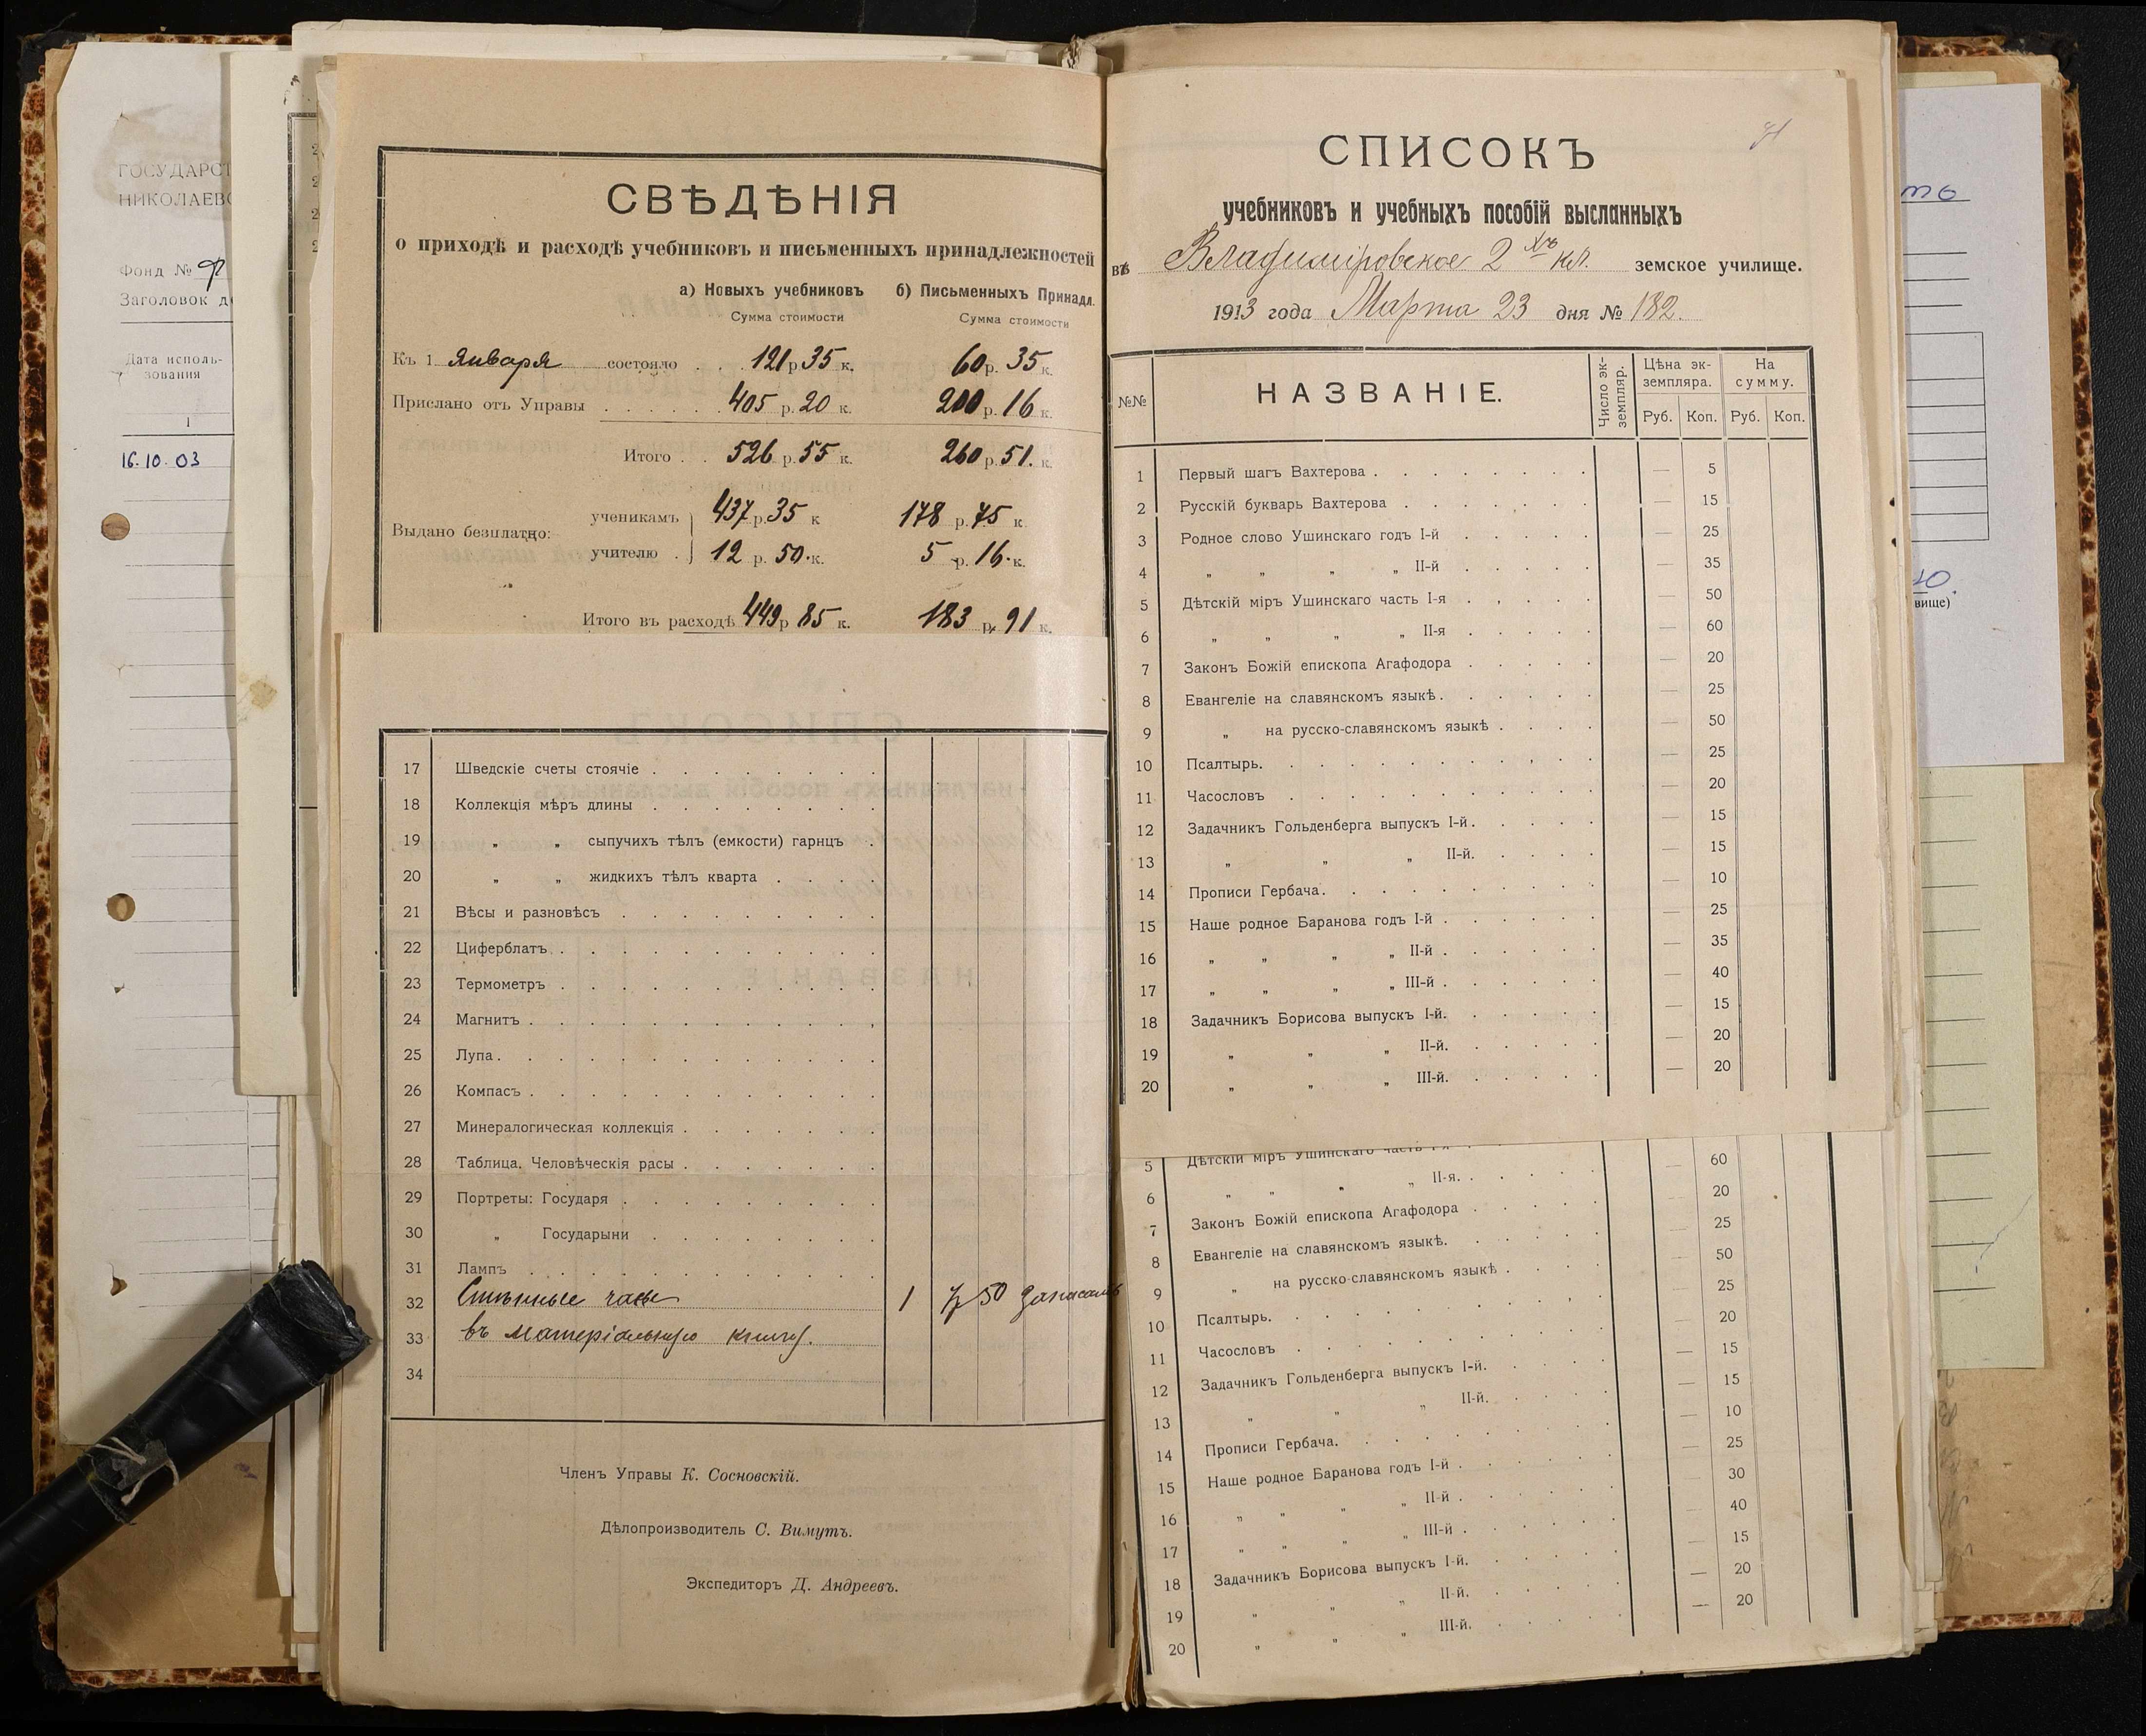 ГОСУДАРСТ
НИКОЛАЕВС
Фонд №
Заголовок д
Дата исполь-
зования
1
16.10.03
СВѢДѢНІЯ
о приходѣ и расходѣ учебниковъ и письменныхъ принадлежностей
а) Новыхъ учебниковъ б) Письменныхъ Принадл.
Сумма стоимости Сумма стоимости
Къ 1 Января состояло . . . 121 р 35 к. 60 р. 35 к.
Прислано отъ Управы . . . . . . 405 р. 20 к. 200 р. 16 к.
Итого . . 526 р. 55 к. 260 р. 51. к.
Выдано безплатно:
ученикамъ 437 р. 35 к 178 р. 75 к.
учителю . 12 р. 50. к. 5 р. 16. к.
Итого въ расходѣ 449 р 85 к. 183 р. 91 к.
17 Шведскіе счеты стоячіе . . . . . . . .
18 Коллекція мѣръ длины . . . . . . . .
19 „ „ сыпучихъ тѣлъ (емкости) гарнцъ .
20 „ „ жидкихъ тѣлъ кварта . . . .
21 Вѣсы и разновѣсъ . . . . . . . . .
22 Циферблатъ . . . . . . . . . . .
23 Термометръ . . . . . . . . . . .
24 Магнитъ . . . . . . . . . . . .
25 Лупа . . . . . . . . . . . . .
26 Компасъ . . . . . . . . . . . .
27 Минералогическая коллекція . . . . . . .
28 Таблица. Человѣческія расы . . . . . . .
29 Портреты: Государя . . . . . . . . .
30 „ Государыни . . . . . . . .
31 Лампъ . . . . . . . . . . . . .
32 Стѣнные часы 1 7 50 Записать
33 въ матеріальную книгу.
34
Членъ Управы К. Сосновскій.
Дѣлопроизводитель С. Вимутъ.
Экспедиторъ Д. Андреевъ.
СПИСОКЪ
учебниковъ и учебныхъ пособій высланныхъ
въ Владиміровское 2 хъ кл. земское училище.
1913 года Марта 23 дня № 182.
№№ НАЗВАНІЕ. Число эк-земпляр. Цѣна эк-земпляра. На сумму.
Руб. Коп. Руб. Коп.
1 Первый шагъ Вахтерова . . . . . . . — 5
2 Русскій букварь Вахтерова . . . . . . — 15
3 Родное слово Ушинскаго годъ I-й . . . . . — 25
4 „ „ „ „ II-й . . . . . — 35
5 Дѣтскій міръ Ушинскаго часть I-я . . . . . — 50
6 „ „ „ „ II-я . . . . . — 60
7 Законъ Божій епископа Агафодора . . . . . — 20
8 Евангеліе на славянскомъ языкѣ . . . . . . — 25
9 „ на русско-славянскомъ языкѣ . . . . — 50
10 Псалтырь. . . . . . . . . . . . — 25
11 Часословъ . . . . . . . . . . — 20
12 Задачникъ Гольденберга выпускъ I-й. . . . . — 15
13 „ „ „ II-й. . . . . — 15
14 Прописи Гербача. . . . . . . . . . — 10
15 Наше родное Баранова годъ I-й . . . . . . — 25
16 „ „ „ „ II-й . . . . . . — 35
17 „ „ „ „ III-й . . . . . . — 40
18 Задачникъ Борисова выпускъ I-й. . . . . . — 15
19 „ „ „ II-й. . . . . . — 20
20 „ „ „ III-й. . . . . . — 20
5 Дѣтскій міръ Ушинскаго часть I-я — 60
6 „ „ „ „ II-я. . . . . — 20
7 Законъ Божій епископа Агафодора . . . . . — 25
8 Евангеліе на славянскомъ языкѣ. . . . . . — 50
9 „ на русско-славянскомъ языкѣ . . . . — 25
10 Псалтырь. . . . . . . . . . — 20
11 Часословъ . . . . . . . . . — 15
12 Задачникъ Гольденберга выпускъ I-й. . . . . — 15
13 „ „ „ II-й. . . . . — 10
14 Прописи Гербача. . . . . . . . . — 25
15 Наше родное Баранова годъ I-й . . . . . . — 30
16 „ „ „ „ II-й . . . . . . — 40
17 „ „ „ „ III-й . . . . . . — 15
18 Задачникъ Борисова выпускъ I-й. . . . . . — 20
19 „ „ „ II-й. . . . . . — 20
20 „ „ „ III-й. . . . . .
вище)